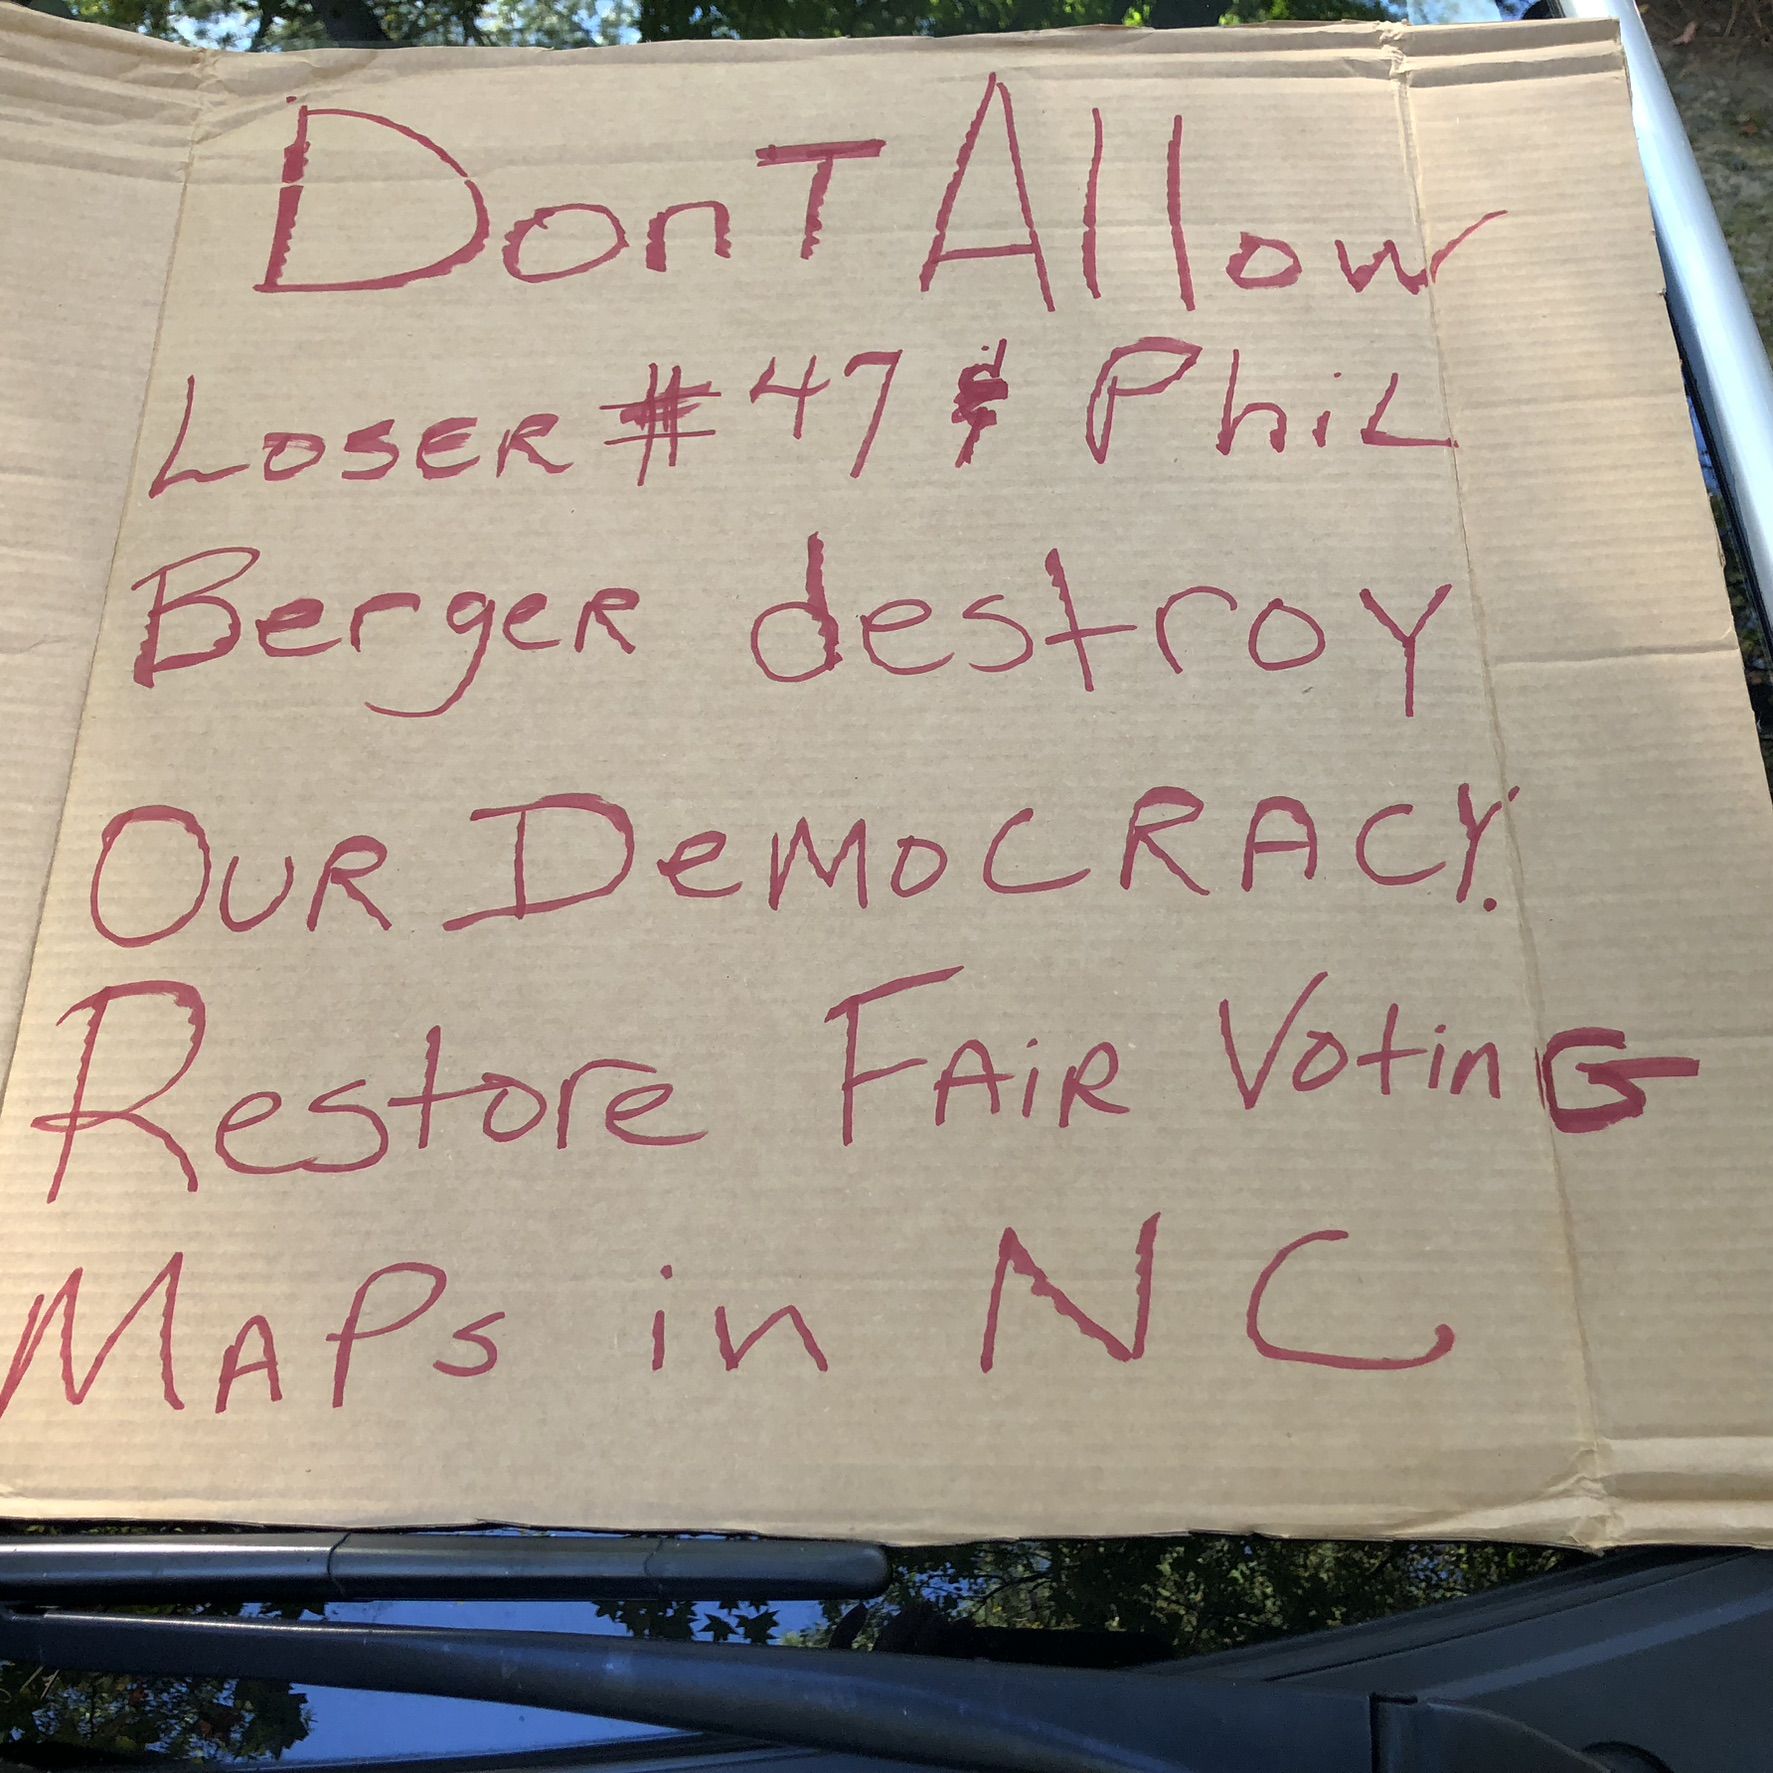 DonT Allow
LOSER #47 & PhiL
BergeR destroy
OUR DeMOCRACY.
Restore FAiR VotinG
MAPs in NC